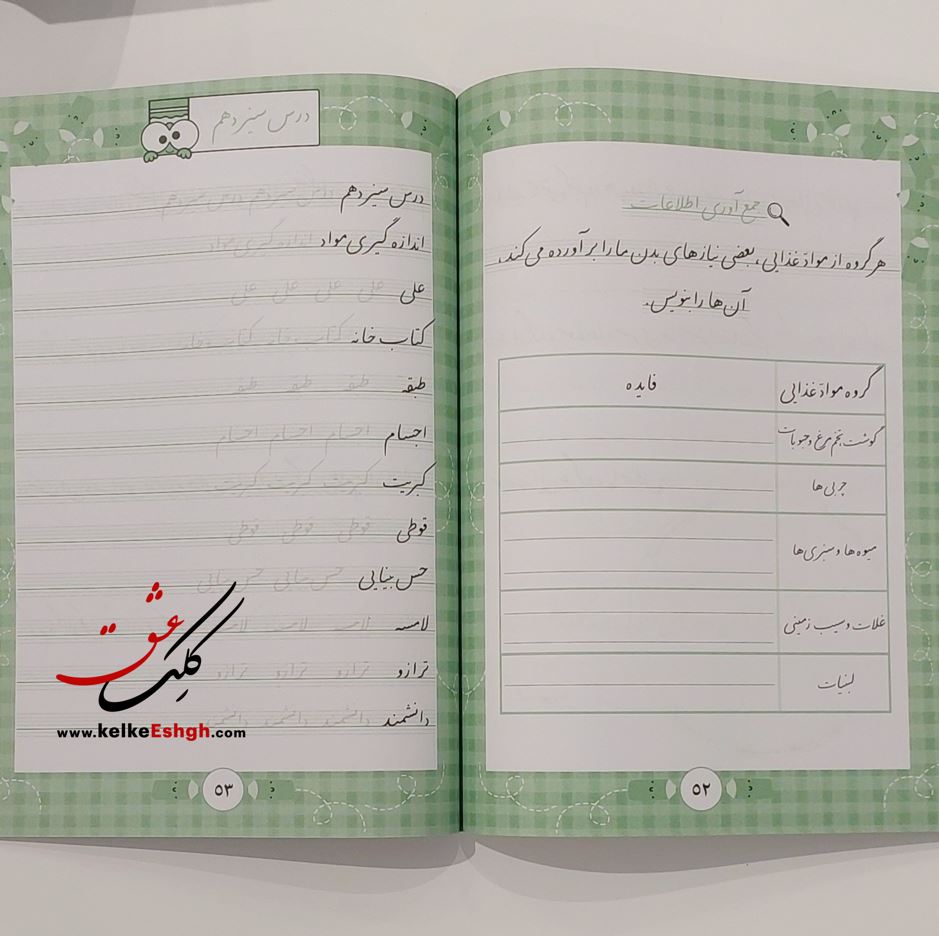 جمع آوری اطلاعات
هر گروه از موادّ غذایی، بعضی نیازهای بدن ما را برآورده می‌کند،
آن‌ها را بنویس.
گروه موادّ غذایی فایده
گوشت، تخم مرغ و حبوبات
چربی‌ها
میوه‌ها و سبزی‌ها
غلات و سیب زمینی
لبنیات
۵۲
درس سیزدهم
درس سیزدهم درس سیزدهم درس سیزدهم
اندازه گیری مواد اندازه گیری مواد
علی علی علی علی علی
کتاب خانه کتاب خانه کتاب خانه
طبقه طبقه طبقه طبقه
اجسام اجسام اجسام اجسام
کبریت کبریت کبریت کبریت
قوطی قوطی قوطی قوطی
حس بینایی حس بینایی حس بینایی
لامسه لامسه لامسه لامسه
ترازو ترازو ترازو ترازو
دانشمند دانشمند دانشمند دانشمند
۵۳
کلک عشق
www.kelkeEshgh.com